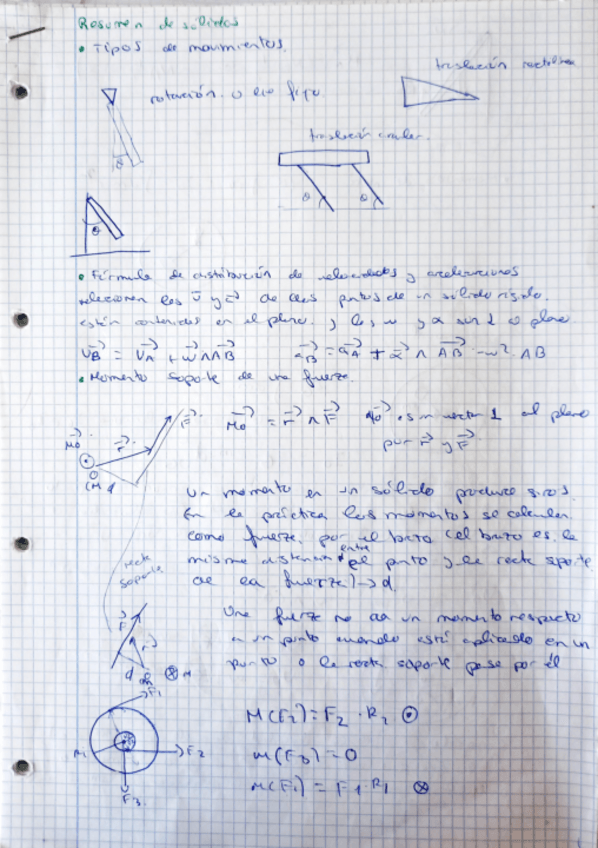 Resumen de sólidos
• Tipos de movimientos.
traslación rectilínea
rotación o eje fijo
traslación circular.
θ
θ θ
θ
• Fórmula de distribución de velocidades y aceleraciones
relacionan los v y a de dos puntos de un sólido rígido.
están contenidos en el plano. y los w y α son ⊥ al plano
VB = VA + w ∧ AB aB = aA + α ∧ AB - w² · AB
• Momento soporte de una fuerza.
F
Mo r
Mo = r ∧ F Mo es un vector ⊥ al plano
por r y F
O
d
Un momento en un sólido produce giros.
En la práctica los momentos se calculan
como fuerza por el brazo (el brazo es la
misma distancia entre el punto y la recta soporte
de la fuerza) → d.
recta
soporte
F
r
d
⊗ M
Una fuerza no da un momento respecto
a un punto cuando está aplicada en un
punto o la recta soporte pasa por él
F1
M(F2) = F2 · R2 ⊙
F2
M(F3) = 0
M(F1) = F1 · R1 ⊗
F3